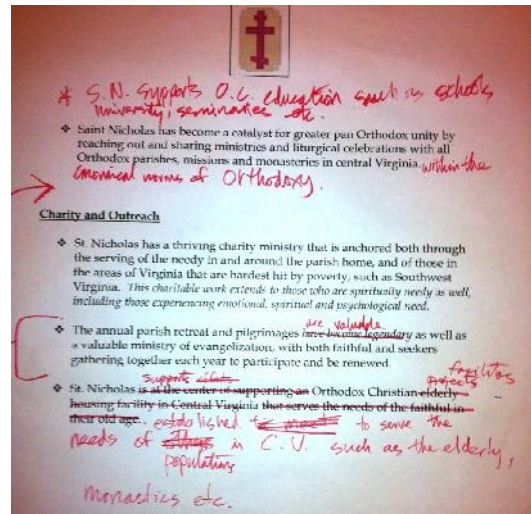 * S.N. supports O.C. education such as schools
university, seminaries etc.
❖ Saint Nicholas has become a catalyst for greater pan Orthodox unity by
reaching out and sharing ministries and liturgical celebrations with all
Orthodox parishes, missions and monasteries in central Virginia. within the
canonical norms of Orthodoxy.
Charity and Outreach
❖ St. Nicholas has a thriving charity ministry that is anchored both through
the serving of the needy in and around the parish home, and of those in
the areas of Virginia that are hardest hit by poverty, such as Southwest
Virginia. This charitable work extends to those who are spiritually needy as well,
including those experiencing emotional, spiritual and psychological need.
are valuable
❖ The annual parish retreat and pilgrimages have become legendary as well as
a valuable ministry of evangelization, with both faithful and seekers
gathering together each year to participate and be renewed.
supports projects
❖ St. Nicholas is at the center of supporting an Orthodox Christian elderly
housing facility in Central Virginia that serves the needs of the faithful in
their old age. established to serve the
needs of in C.V. such as the elderly,
populations
monastics etc.